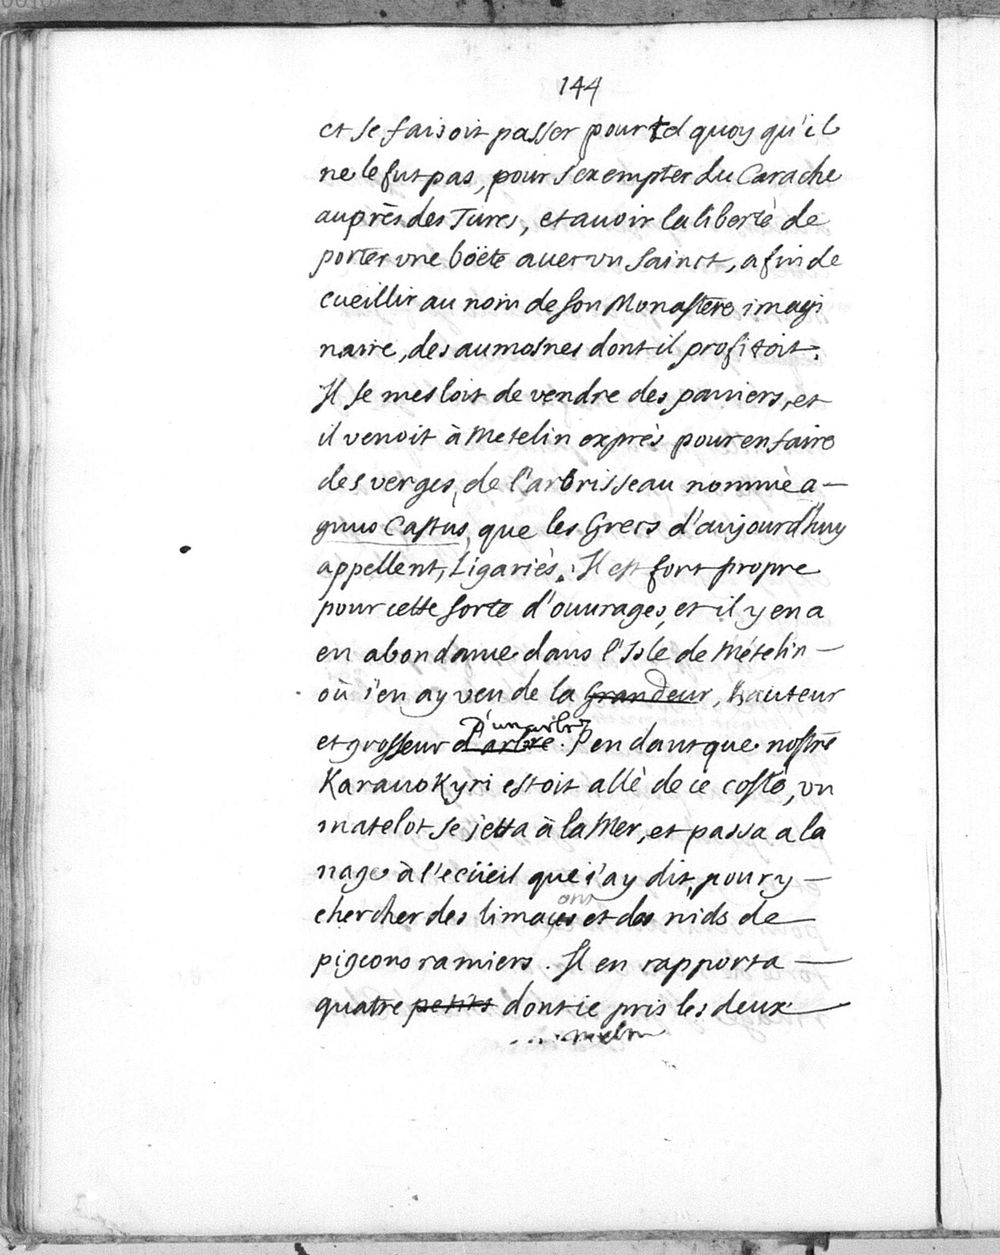 144
et se faisoit passer pour tel quoy qu'il
ne le fut pas, pour s'exempter du Carache
auprès des Turcs, et avoir la liberté de
porter vne boëte avec vn Sainct, afin de
cueillir au nom de son Monastere imagi
naire, des aumosnes dont il profitoit.
Il se mesloit de vendre des paniers, et
il venoit à Metelin exprès pour en faire
des verges, de l'arbrisseau nommè a-
gnus Castus, que les Grecs d'aujourd'huy
appellent, Ligariés. Il est fort propre
pour cette sorte d'ouurages, et il y en a
en abondance dans l'Isle de Mételin -
où i'en ay veu de la Grandeur, hauteur
D'un arbre
et grosseur d'arbre. Pendant que nostre
KarauoKyri estoit allè de ce costè, vn
matelot se jetta à la Mer, et passa a la
nage à l'ecüeil que i'ay dit, pour y -
chercher des limaçons et des nids de
pigeons ramiers. Il en rapporta -
quatre petits dont ie pris les deux